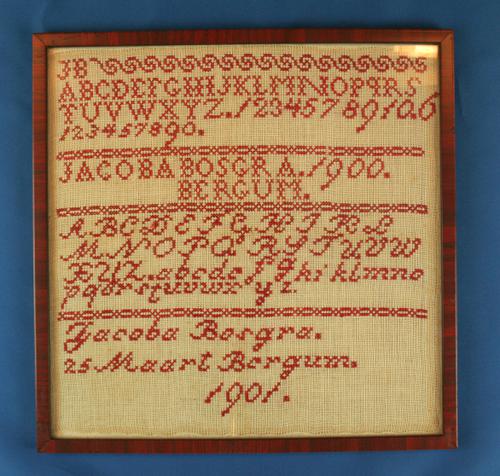 JB
ABCDEFGHIJKLMNOPQRS
TUVWXYZ. 1234578910.6
123457890.
JACOBA BOSGRA. 1900.
BERGUM.
ABCDEFGHIJKL
MNOPQRSTUVW
XYZ. abcdefghiklmno
pqorstuvwx yz.
Jacoba Bosgra.
25 Maart Bergum.
1901.